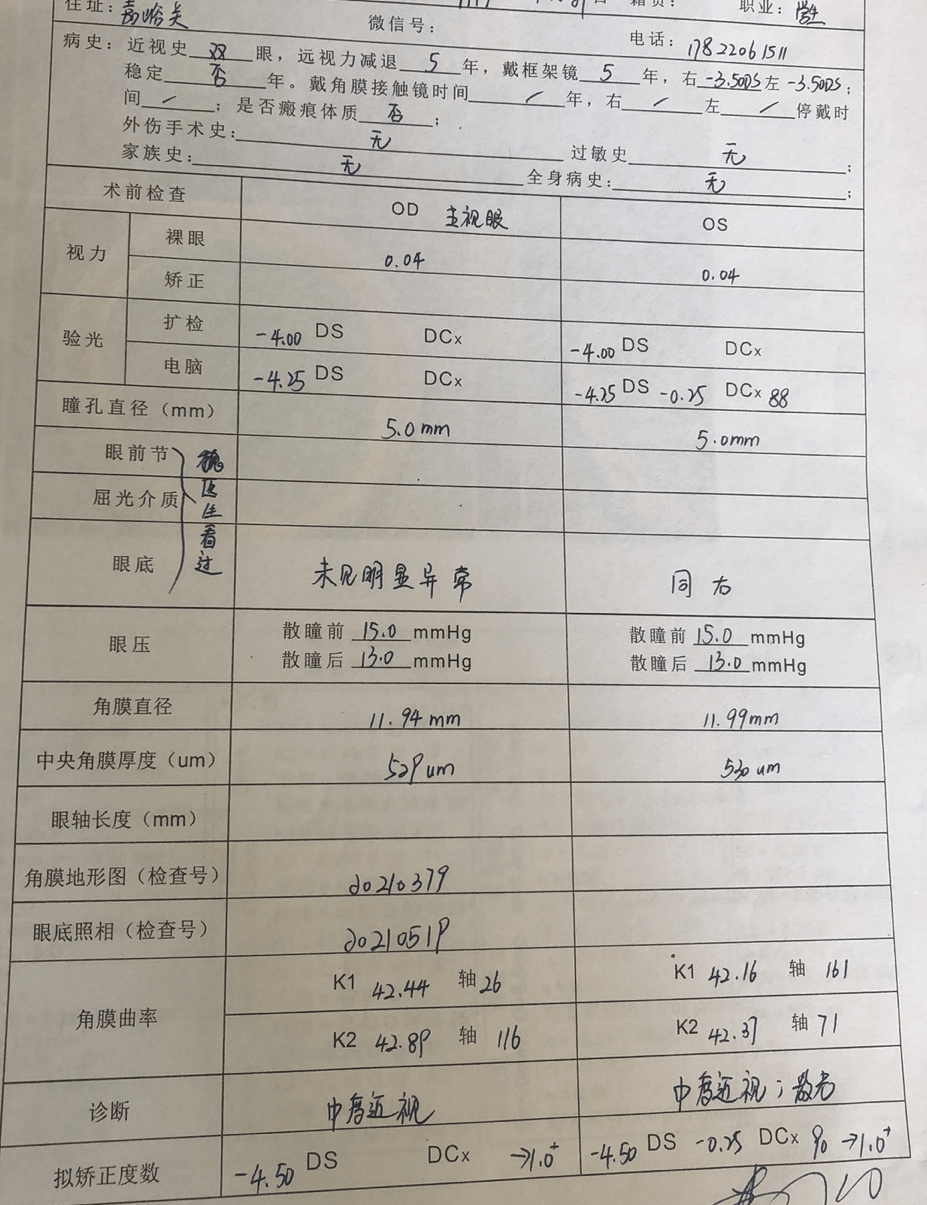 住址：嘉峪关 职业：学生
微信号： 电话：17822061511
病史：近视史 双 眼，远视力减退 5 年，戴框架镜 5 年，右-3.50DS左-3.50DS；
稳定 否 年。戴角膜接触镜时间 / 年，右 / 左 / 停戴时
间 / ；是否瘢痕体质 否 ；
外伤手术史： 无 过敏史 无 ；
家族史： 无 全身病史： 无 ；
术前检查 OD 主视眼 OS
视力 裸眼 0.04 0.04
矫正
验光 扩检 -4.00 DS DCx -4.00 DS DCx
电脑 -4.25 DS DCx -4.25 DS -0.25 DCx 88
瞳孔直径（mm） 5.0mm 5.0mm
眼前节
屈光介质
医生看过
眼底 未见明显异常 同右
眼压 散瞳前 15.0 mmHg 散瞳前 15.0 mmHg
散瞳后 13.0 mmHg 散瞳后 13.0 mmHg
角膜直径 11.94mm 11.99mm
中央角膜厚度（um） 529um 530um
眼轴长度（mm）
角膜地形图（检查号） 20210379
眼底照相（检查号） 20210519
角膜曲率 K1 42.44 轴 26 K1 42.16 轴 161
K2 42.89 轴 116 K2 42.37 轴 71
诊断 中度近视 中度近视；散光
拟矫正度数 -4.50 DS DCx →1.0⁺ -4.50 DS -0.25 DCx 90 →1.0⁺